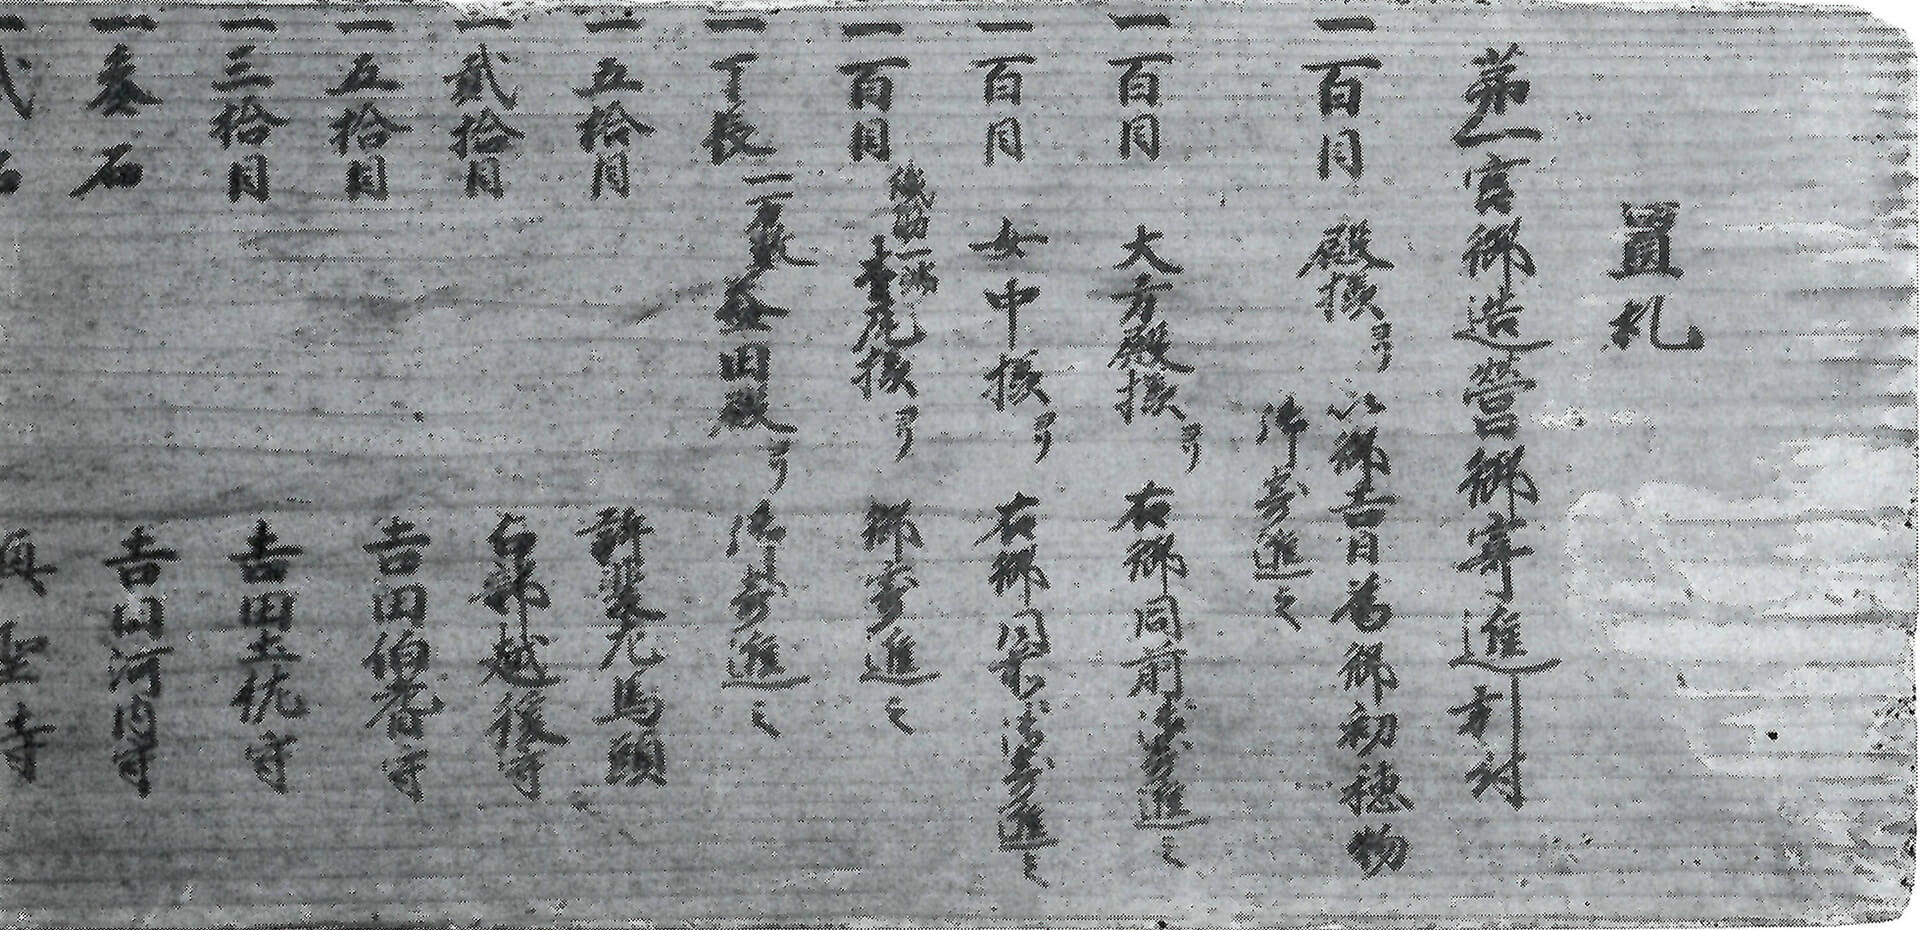 置札
第一宮御造営御寄進私付
一百目 殿様ヨリ 以御吉日為御初穂物
御寄進之
一百目 大方殿様ヨリ 右御同前御寄進之
一百目 女中様ヨリ 右御同前御寄進之
一百目 様ヨリ 御寄進之
一丁銀 二数金田殿ヨリ 御寄進之
一五拾目 許斐左馬頭
一貳拾目 白郡越後守
一五拾目 吉田伯耆守
一三拾目 吉田土佐守
一参石 吉田河内守
一弐石 真聖寺